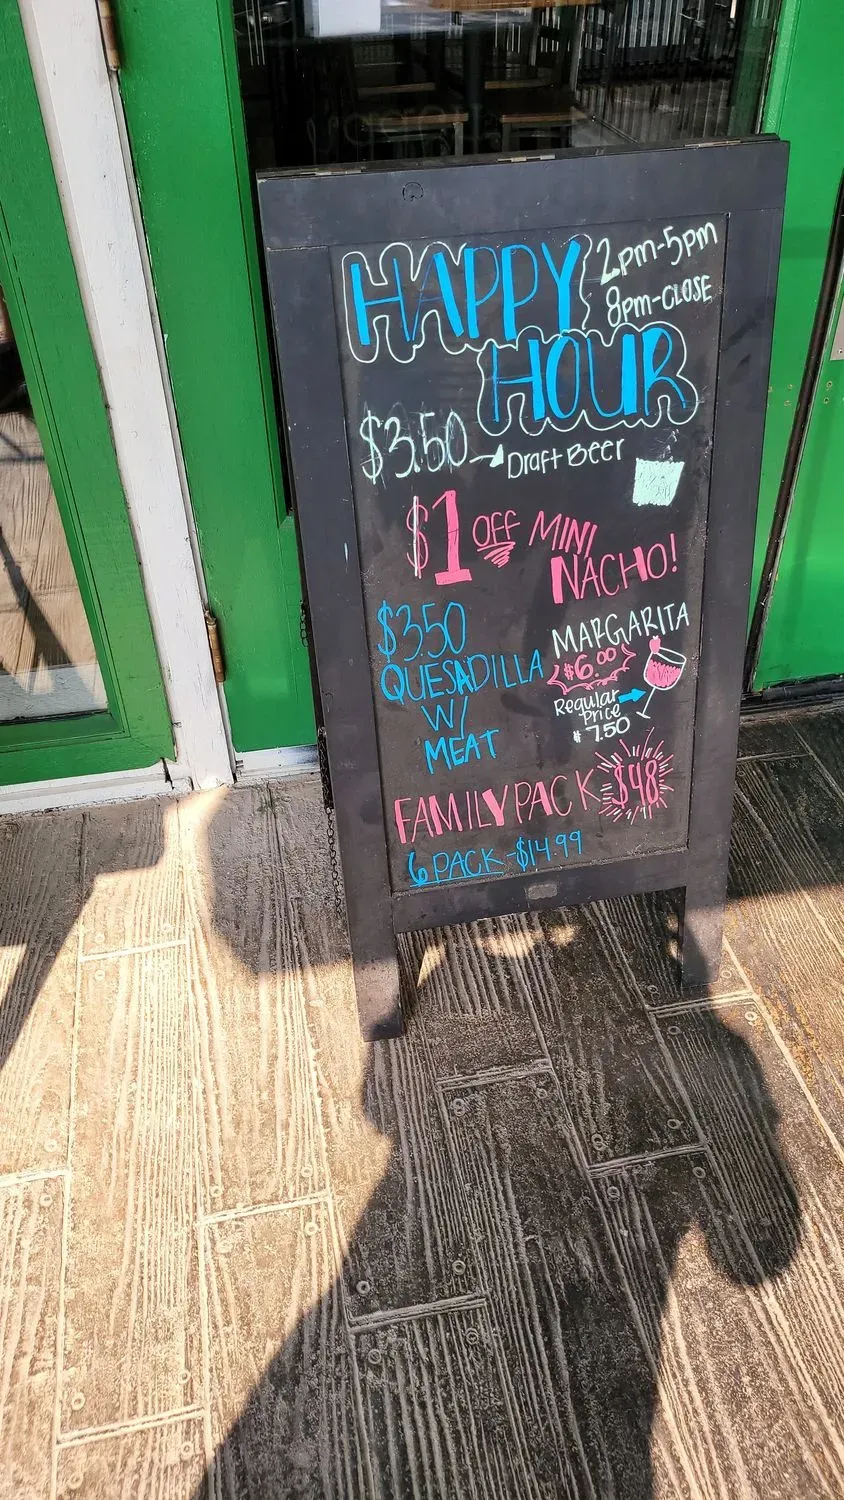 HAPPY 2pm-5pm
8pm-CLOSE
HOUR
$3.50 → Draft Beer
$1 OFF MINI
NACHO!
$3.50
QUESADILLA
W/
MEAT
MARGARITA
$6.00
Regular
Price
$7.50
FAMILY PACK $48
6 PACK-$14.99